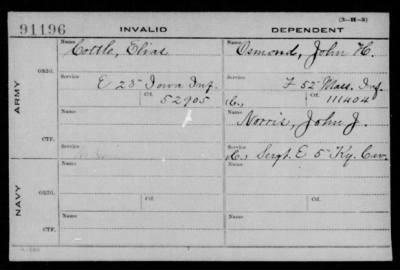 (3-H-3)
91196 INVALID DEPENDENT
Name Name
Cottle, Elias Osmond, John H.
ORIG. Service Service
E 25 Iowa Inf. F 52 Mass. Inf.
ARMY Ctf. 52905 C., Ctf. 111404
Name Name
Norris, John J.
CTF. Service Service
C., Sergt. E 5 Ky. Cav.
Name Name
NAVY ORIG.
Service Service
Ctf. Ctf.
Name Name
CTF. Service Service